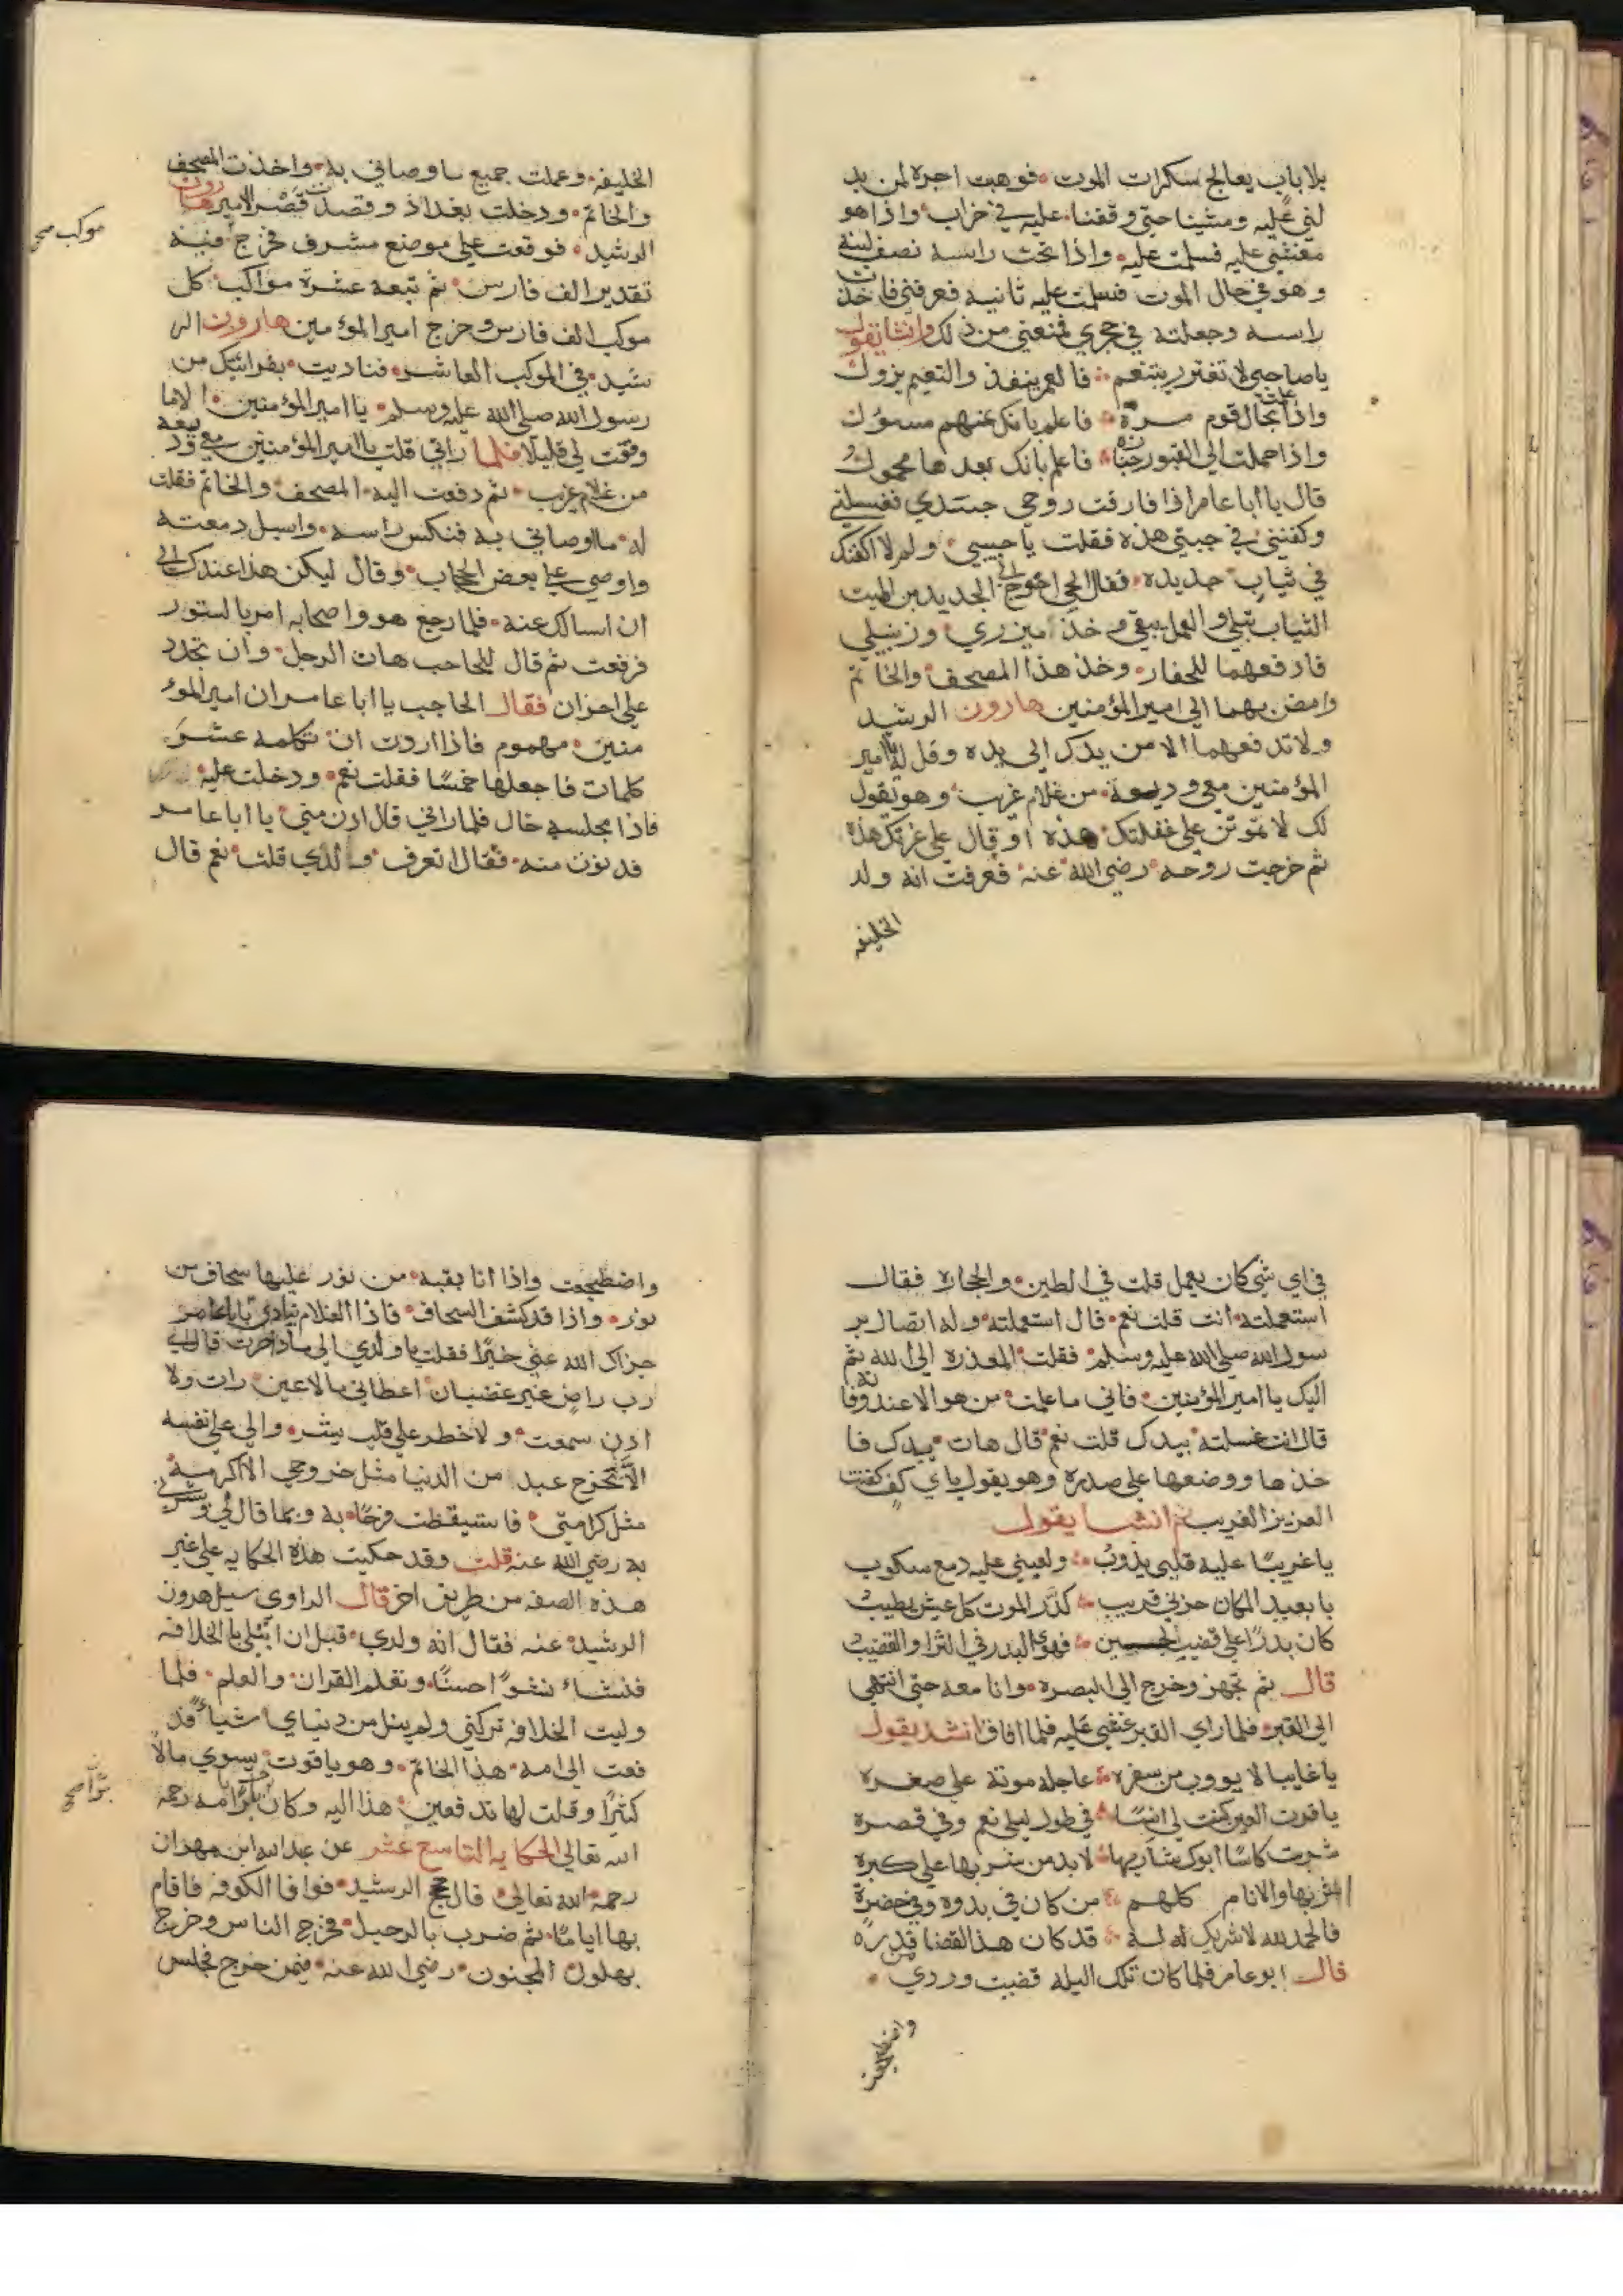 بلا باب يعالج سكرات الموت فوهبت اجره لمن يد
لني عليه ومشينا حتي وقفنا عليه في خراب واذا هو
مغشي عليه فسلمت عليه واذا تحت راسه نصف لبنه
وهو في حال الموت فسلمت عليه ثانيه فعرفني فاخذت
راسه وجعلته في حجري فمنعني من ذلك وانشا يقول
يا صاحبي لا تغترر بتنعم فالعمر ينفذ والنعيم يزول
واذا علمت بحال قوم مرة فاعلم بانك عنهم مسؤل
واذا حملت الي القبور جنازه فاعلم بانك بعدها محمول
قال يا ابا عامر اذا فارقت روحي جسدي فغسلني
وكفنني في جبتي هذه فقلت يا حبيبي ولم لا اكفنك
في ثياب جديده فقال الحي احوج الي الجديد من الميت
الثياب تبلي والعمل يبقي وخذ اميزري وزنبيلي
فادفعهما للحفار وخذ هذا المصحف والخاتم
وامض بهما الي امير المؤمنين هارون الرشيد
ولا تدفعهما الا من يدك الي يده وقل له يا امير
المؤمنين معي وديعة من غلام غريب وهو يقول
لك لا تموتن علي غفلتك هذه او قال علي غرتك هذه
ثم خرجت روحه رضي الله عنه فعرفت انه ولد
الخليفه
الخليفه وعملت جميع ما وصاني به واخذت المصحف
والخاتم ودخلت بغداد وقصدت قصر الامير هارون
الرشيد فوقعت علي موضع مشرف فخرج منه
موكب صح
تقدير الف فارس ثم تبعه عشرة مواكب كل
موكب الف فارس وخرج امير المؤمنين هارون الر
شيد في الموكب العاشر فناديت بقرابتك من
رسول الله صلي الله عليه وسلم يا امير المؤمنين الاما
وقفت لي قليلا فلما راني قلت يا امير المؤمنين معي وديعه
من غلام غريب ثم دفعت اليه المصحف والخاتم فقلت
له ما اوصاني به فنكس راسه واسبل دمعته
واوصي علي بعض الحجاب وقال ليكن هذا عندك الي
ان اسالك عنه فلما رجع هو واصحابه امر بالستور
فرفعت ثم قال للحاجب هات الرجل وان تجدد
علي احزان فقال الحاجب يا ابا عامر ان امير المؤ
منين مهموم فاذا اردت ان تكلمه عشر
كلمات فاجعلها خمسًا فقلت نعم ودخلت عليه
فاذا مجلسه خال فلما راني قال ادن مني يا ابا عامر
فدنوت منه فقال اتعرف ولدي قلت نعم قال
في اي شي كان يعمل قلت في الطين والحجاره فقال
استعملته انت قلت نعم قال استعملته وله اتصال بر
سول الله صلي الله عليه وسلم فقلت المعذره الي الله ثم
اليك يا امير المؤمنين فاني ما علمت من هو الا عند وفاته
قال انت غسلته بيدك قلت نعم قال هات يدك فا
خذها ووضعها علي صدره وهو يقول باي كف كفنت
العزيز الغريب ثم انشا يقول
يا غريبًا عليه قلبي يذوب ولعيني عليه دمع سكوب
يا بعيد المكان حزني قريب كدّر الموت كل عيش يطيب
كان بدرًا علي قضيب لجين فهوي البدر في الثرا والقضيب
قال ثم تجهز وخرج الي البصره وانا معه حتي انتهي
الي القبر فلما راي القبر غشي عليه فلما افاق انشد يقول
يا غايبا لا يووب من سفره عاجله موته علي صغره
يا قرت العين كنت لي انسًا في طول ليلي نعم وفي قصره
شربت كاسًا ابوك شاربها لا بد من شربها علي كبره
اشربها والانام كلهم من كان في بدوه وفي حضره
فالحمد لله لا شريك له له قد كان هذ القضا من قدره
قال ابو عامر فلما كان تلك اليله قضيت وردي
واضطجعت
واضطجعت واذا انا بقبه من نور عليها سحاف من
نور واذا قد كشف السحاف فاذا الغلام ينادي يا ابا عامر
جزاك الله عني خيرًا فقلت يا ولدي الي ماذا صرت قال الي
رب راض غير غضبان اعطاني ما لا عين رات ولا
اذن سمعت ولا خطر علي قلب بشر والي علي نفسه
الا تخرج عبد من الدنيا مثل خروجي الا اكرمه
مثل كرامتي فاستيقظت فرحًا به وبما قال لي وبشرني
به رضي الله عنه قلت وقد حكيت هذه الحكايه علي غير
هذه الصفه من طريق اخر قال الراوي سيل هرون
الرشيد عنه فقال انه ولدي قبل ان ابتلي بالخلافه
فنشاء نشوًا حسنًا وتعلم القران والعلم فلما
وليت الخلافه تركني ولم ينل من دنياي شياءً فد
فعت الي امه هذا الخاتم وهو ياقوت يسوي مالاً
كثيرًا وقلت لها تدفعين هذا اليه وكان برًّا بامه رحمه
برًّا صح
الله تعالي الحكايه التاسع عشر عن عبد الله ابن مهران
رحمه الله تعالي قال حج الرشيد فوافا الكوفه فاقام
بها ايامًا ثم ضرب بالرحيل فخرج الناس وخرج
بهلول المجنون رضي الله عنه فيمن خرج فجلس